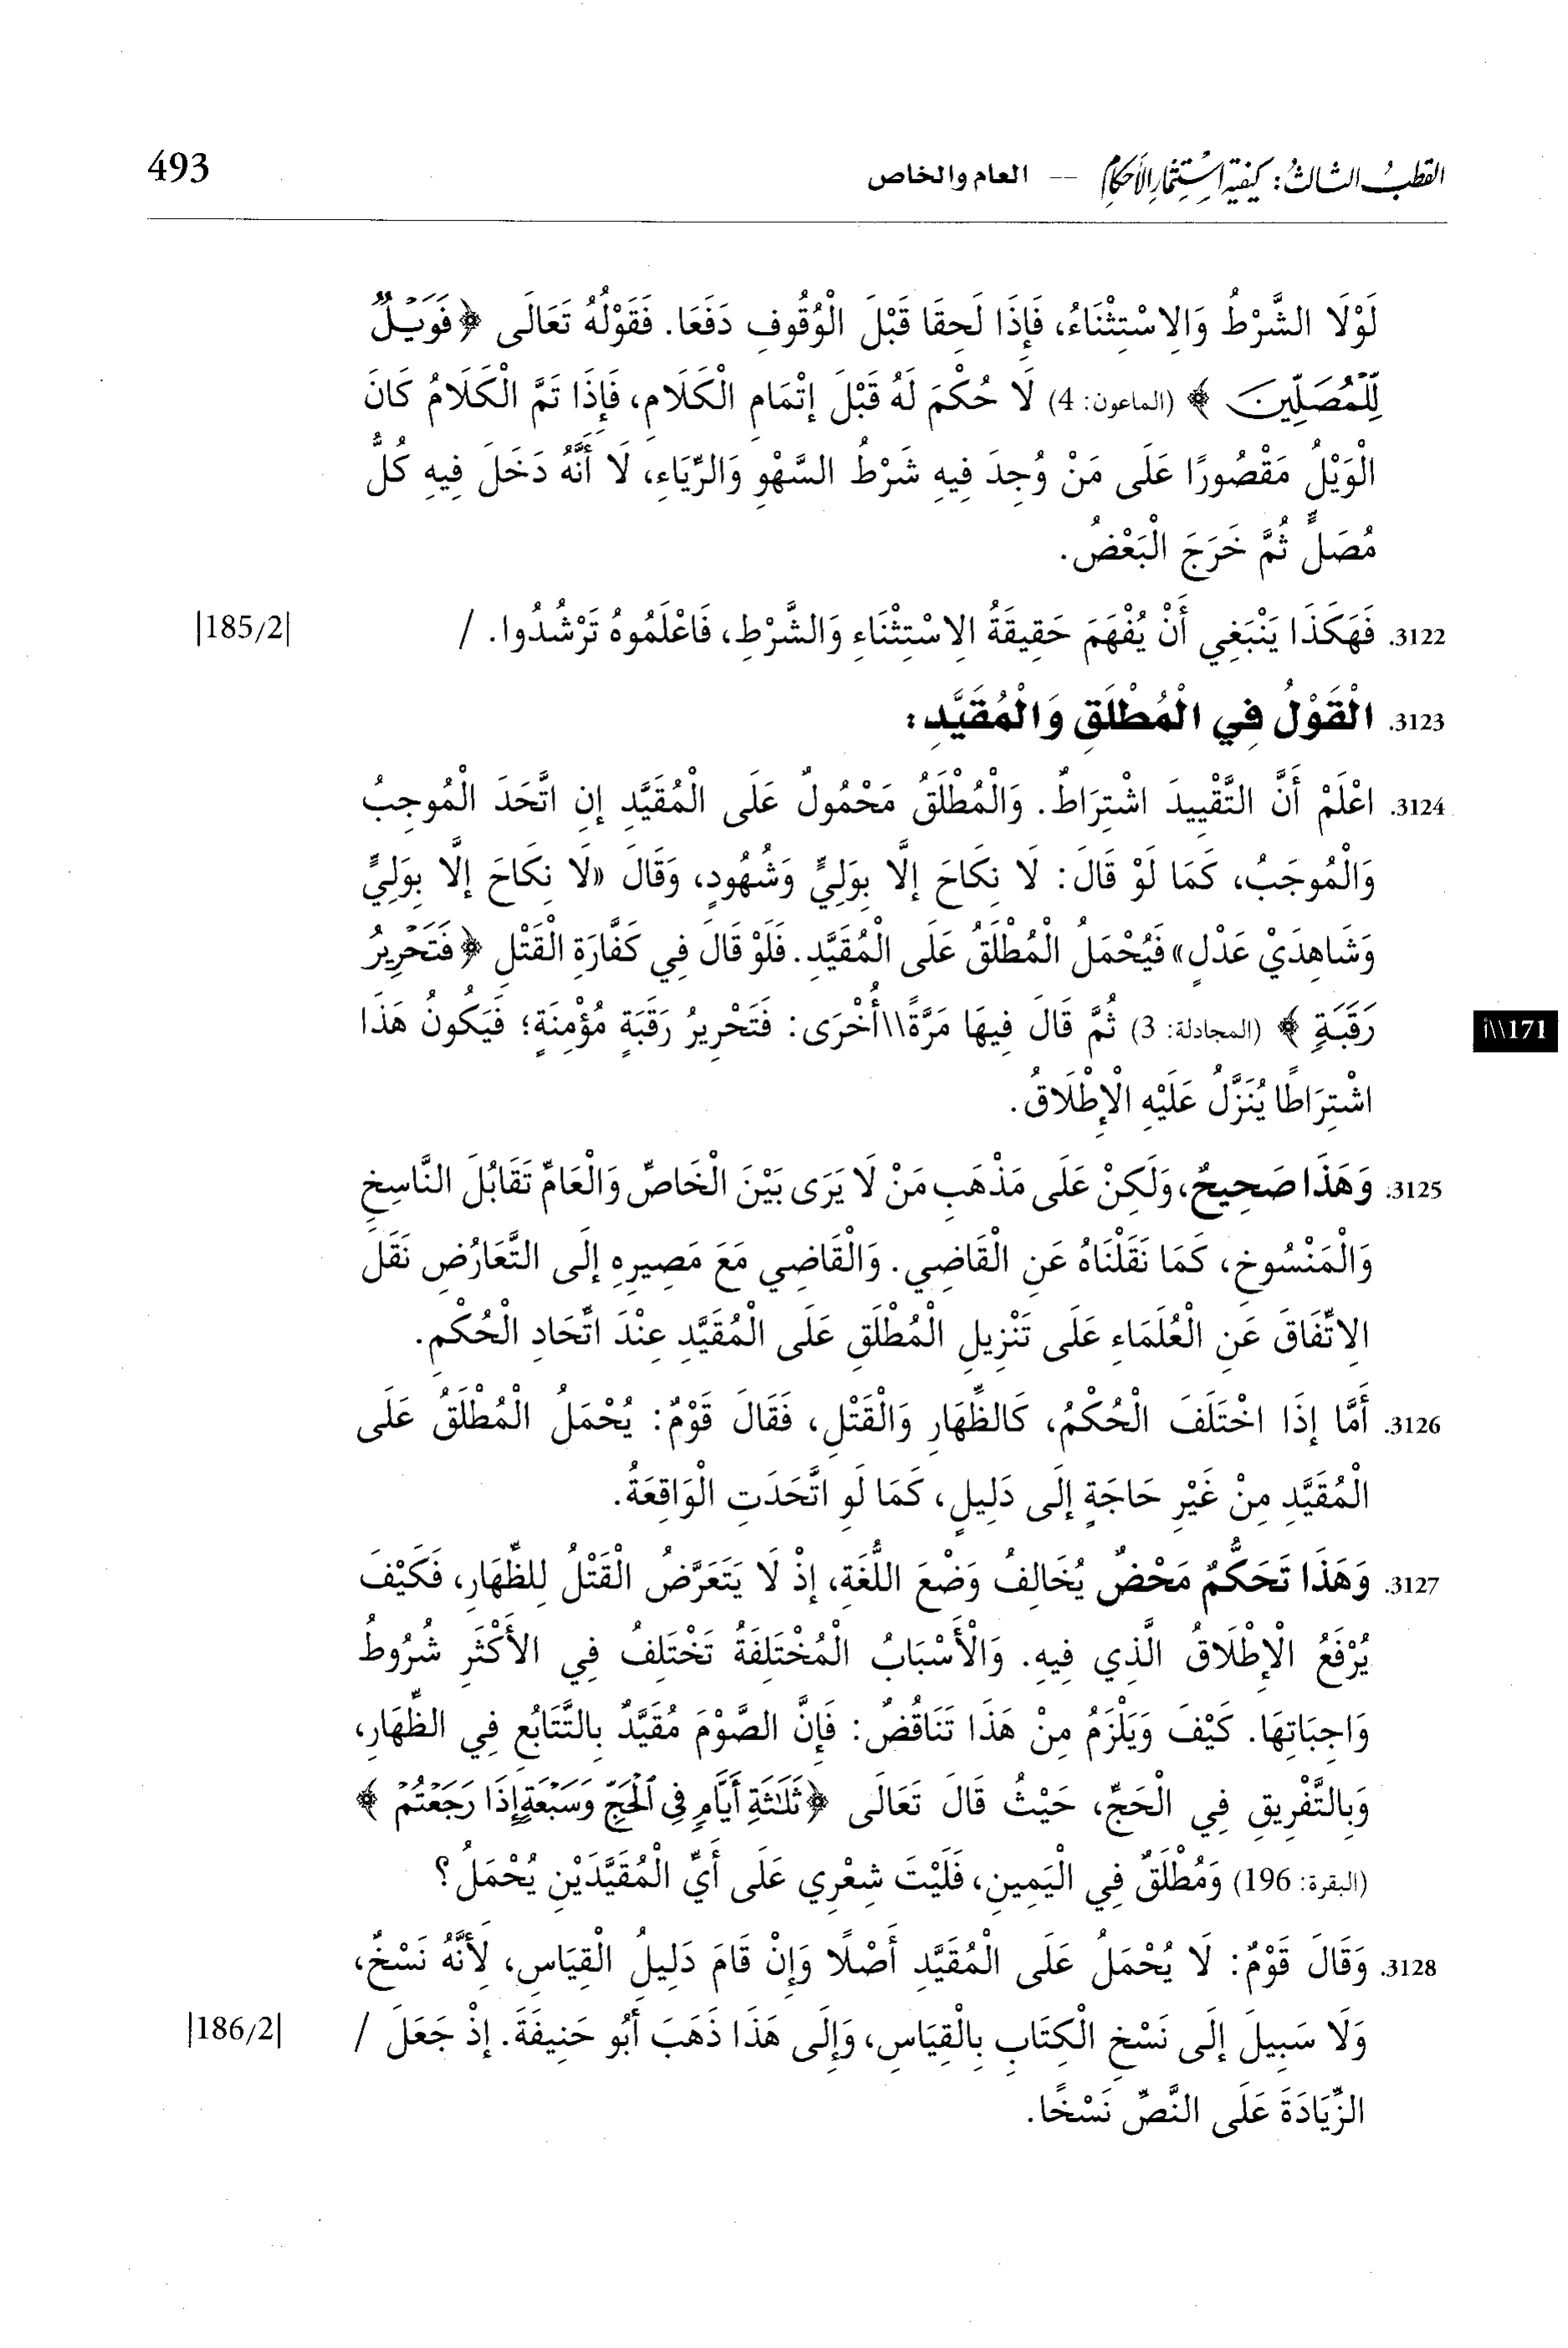 القطب الثالث: كيفية استثمار الأحكام -- العام والخاص 493
لَوْلَا الشَّرْطُ وَالِاسْتِثْنَاءُ، فَإِذَا لَحِقَا قَبْلَ الْوُقُوفِ دَفَعَا. فَقَوْلُهُ تَعَالَى ﴿فَوَيْلٌ
لِّلْمُصَلِّينَ﴾ (الماعون: 4) لَا حُكْمَ لَهُ قَبْلَ إِتْمَامِ الْكَلَامِ، فَإِذَا تَمَّ الْكَلَامُ كَانَ
الْوَيْلُ مَقْصُورًا عَلَى مَنْ وُجِدَ فِيهِ شَرْطُ السَّهْوِ وَالرِّيَاءِ، لَا أَنَّهُ دَخَلَ فِيهِ كُلُّ
مُصَلٍّ ثُمَّ خَرَجَ الْبَعْضُ.
3122. فَهَكَذَا يَنْبَغِي أَنْ يُفْهَمَ حَقِيقَةُ الِاسْتِثْنَاءِ وَالشَّرْطِ، فَاعْلَمُوهُ تَرْشُدُوا. / |185/2|
3123. الْقَوْلُ فِي الْمُطْلَقِ وَالْمُقَيَّدِ:
3124. اعْلَمْ أَنَّ التَّقْيِيدَ اشْتِرَاطٌ. وَالْمُطْلَقُ مَحْمُولٌ عَلَى الْمُقَيَّدِ إِنِ اتَّحَدَ الْمُوجِبُ
وَالْمُوجَبُ، كَمَا لَوْ قَالَ: لَا نِكَاحَ إِلَّا بِوَلِيٍّ وَشُهُودٍ، وَقَالَ «لَا نِكَاحَ إِلَّا بِوَلِيٍّ
وَشَاهِدَيْ عَدْلٍ» فَيُحْمَلُ الْمُطْلَقُ عَلَى الْمُقَيَّدِ. فَلَوْ قَالَ فِي كَفَّارَةِ الْقَتْلِ ﴿فَتَحْرِيرُ
رَقَبَةٍ﴾ (المجادلة: 3) ثُمَّ قَالَ فِيهَا مَرَّةً\\أُخْرَى: فَتَحْرِيرُ رَقَبَةٍ مُؤْمِنَةٍ؛ فَيَكُونُ هَذَا أ\\171
اشْتِرَاطًا يُنَزَّلُ عَلَيْهِ الْإِطْلَاقُ.
3125. وَهَذَا صَحِيحٌ، وَلَكِنْ عَلَى مَذْهَبِ مَنْ لَا يَرَى بَيْنَ الْخَاصِّ وَالْعَامِّ تَقَابُلَ النَّاسِخِ
وَالْمَنْسُوخِ، كَمَا نَقَلْنَاهُ عَنِ الْقَاضِي. وَالْقَاضِي مَعَ مَصِيرِهِ إِلَى التَّعَارُضِ نَقَلَ
الِاتِّفَاقَ عَنِ الْعُلَمَاءِ عَلَى تَنْزِيلِ الْمُطْلَقِ عَلَى الْمُقَيَّدِ عِنْدَ اتِّحَادِ الْحُكْمِ.
3126. أَمَّا إِذَا اخْتَلَفَ الْحُكْمُ، كَالظِّهَارِ وَالْقَتْلِ، فَقَالَ قَوْمٌ: يُحْمَلُ الْمُطْلَقُ عَلَى
الْمُقَيَّدِ مِنْ غَيْرِ حَاجَةٍ إِلَى دَلِيلٍ، كَمَا لَوِ اتَّحَدَتِ الْوَاقِعَةُ.
3127. وَهَذَا تَحَكُّمٌ مَحْضٌ يُخَالِفُ وَضْعَ اللُّغَةِ، إِذْ لَا يَتَعَرَّضُ الْقَتْلُ لِلظِّهَارِ، فَكَيْفَ
يُرْفَعُ الْإِطْلَاقُ الَّذِي فِيهِ. وَالْأَسْبَابُ الْمُخْتَلِفَةُ تَخْتَلِفُ فِي الْأَكْثَرِ شُرُوطُ
وَاجِبَاتِهَا. كَيْفَ وَيَلْزَمُ مِنْ هَذَا تَنَاقُضٌ: فَإِنَّ الصَّوْمَ مُقَيَّدٌ بِالتَّتَابُعِ فِي الظِّهَارِ،
وَبِالتَّفْرِيقِ فِي الْحَجِّ، حَيْثُ قَالَ تَعَالَى ﴿ثَلَٰثَةِ أَيَّامٍ فِي ٱلْحَجِّ وَسَبْعَةٍ إِذَا رَجَعْتُمْ﴾
(البقرة: 196) وَمُطْلَقٌ فِي الْيَمِينِ، فَلَيْتَ شِعْرِي عَلَى أَيِّ الْمُقَيَّدَيْنِ يُحْمَلُ؟
3128. وَقَالَ قَوْمٌ: لَا يُحْمَلُ عَلَى الْمُقَيَّدِ أَصْلًا وَإِنْ قَامَ دَلِيلُ الْقِيَاسِ، لِأَنَّهُ نَسْخٌ،
وَلَا سَبِيلَ إِلَى نَسْخِ الْكِتَابِ بِالْقِيَاسِ، وَإِلَى هَذَا ذَهَبَ أَبُو حَنِيفَةَ. إِذْ جَعَلَ / |186/2|
الزِّيَادَةَ عَلَى النَّصِّ نَسْخًا.